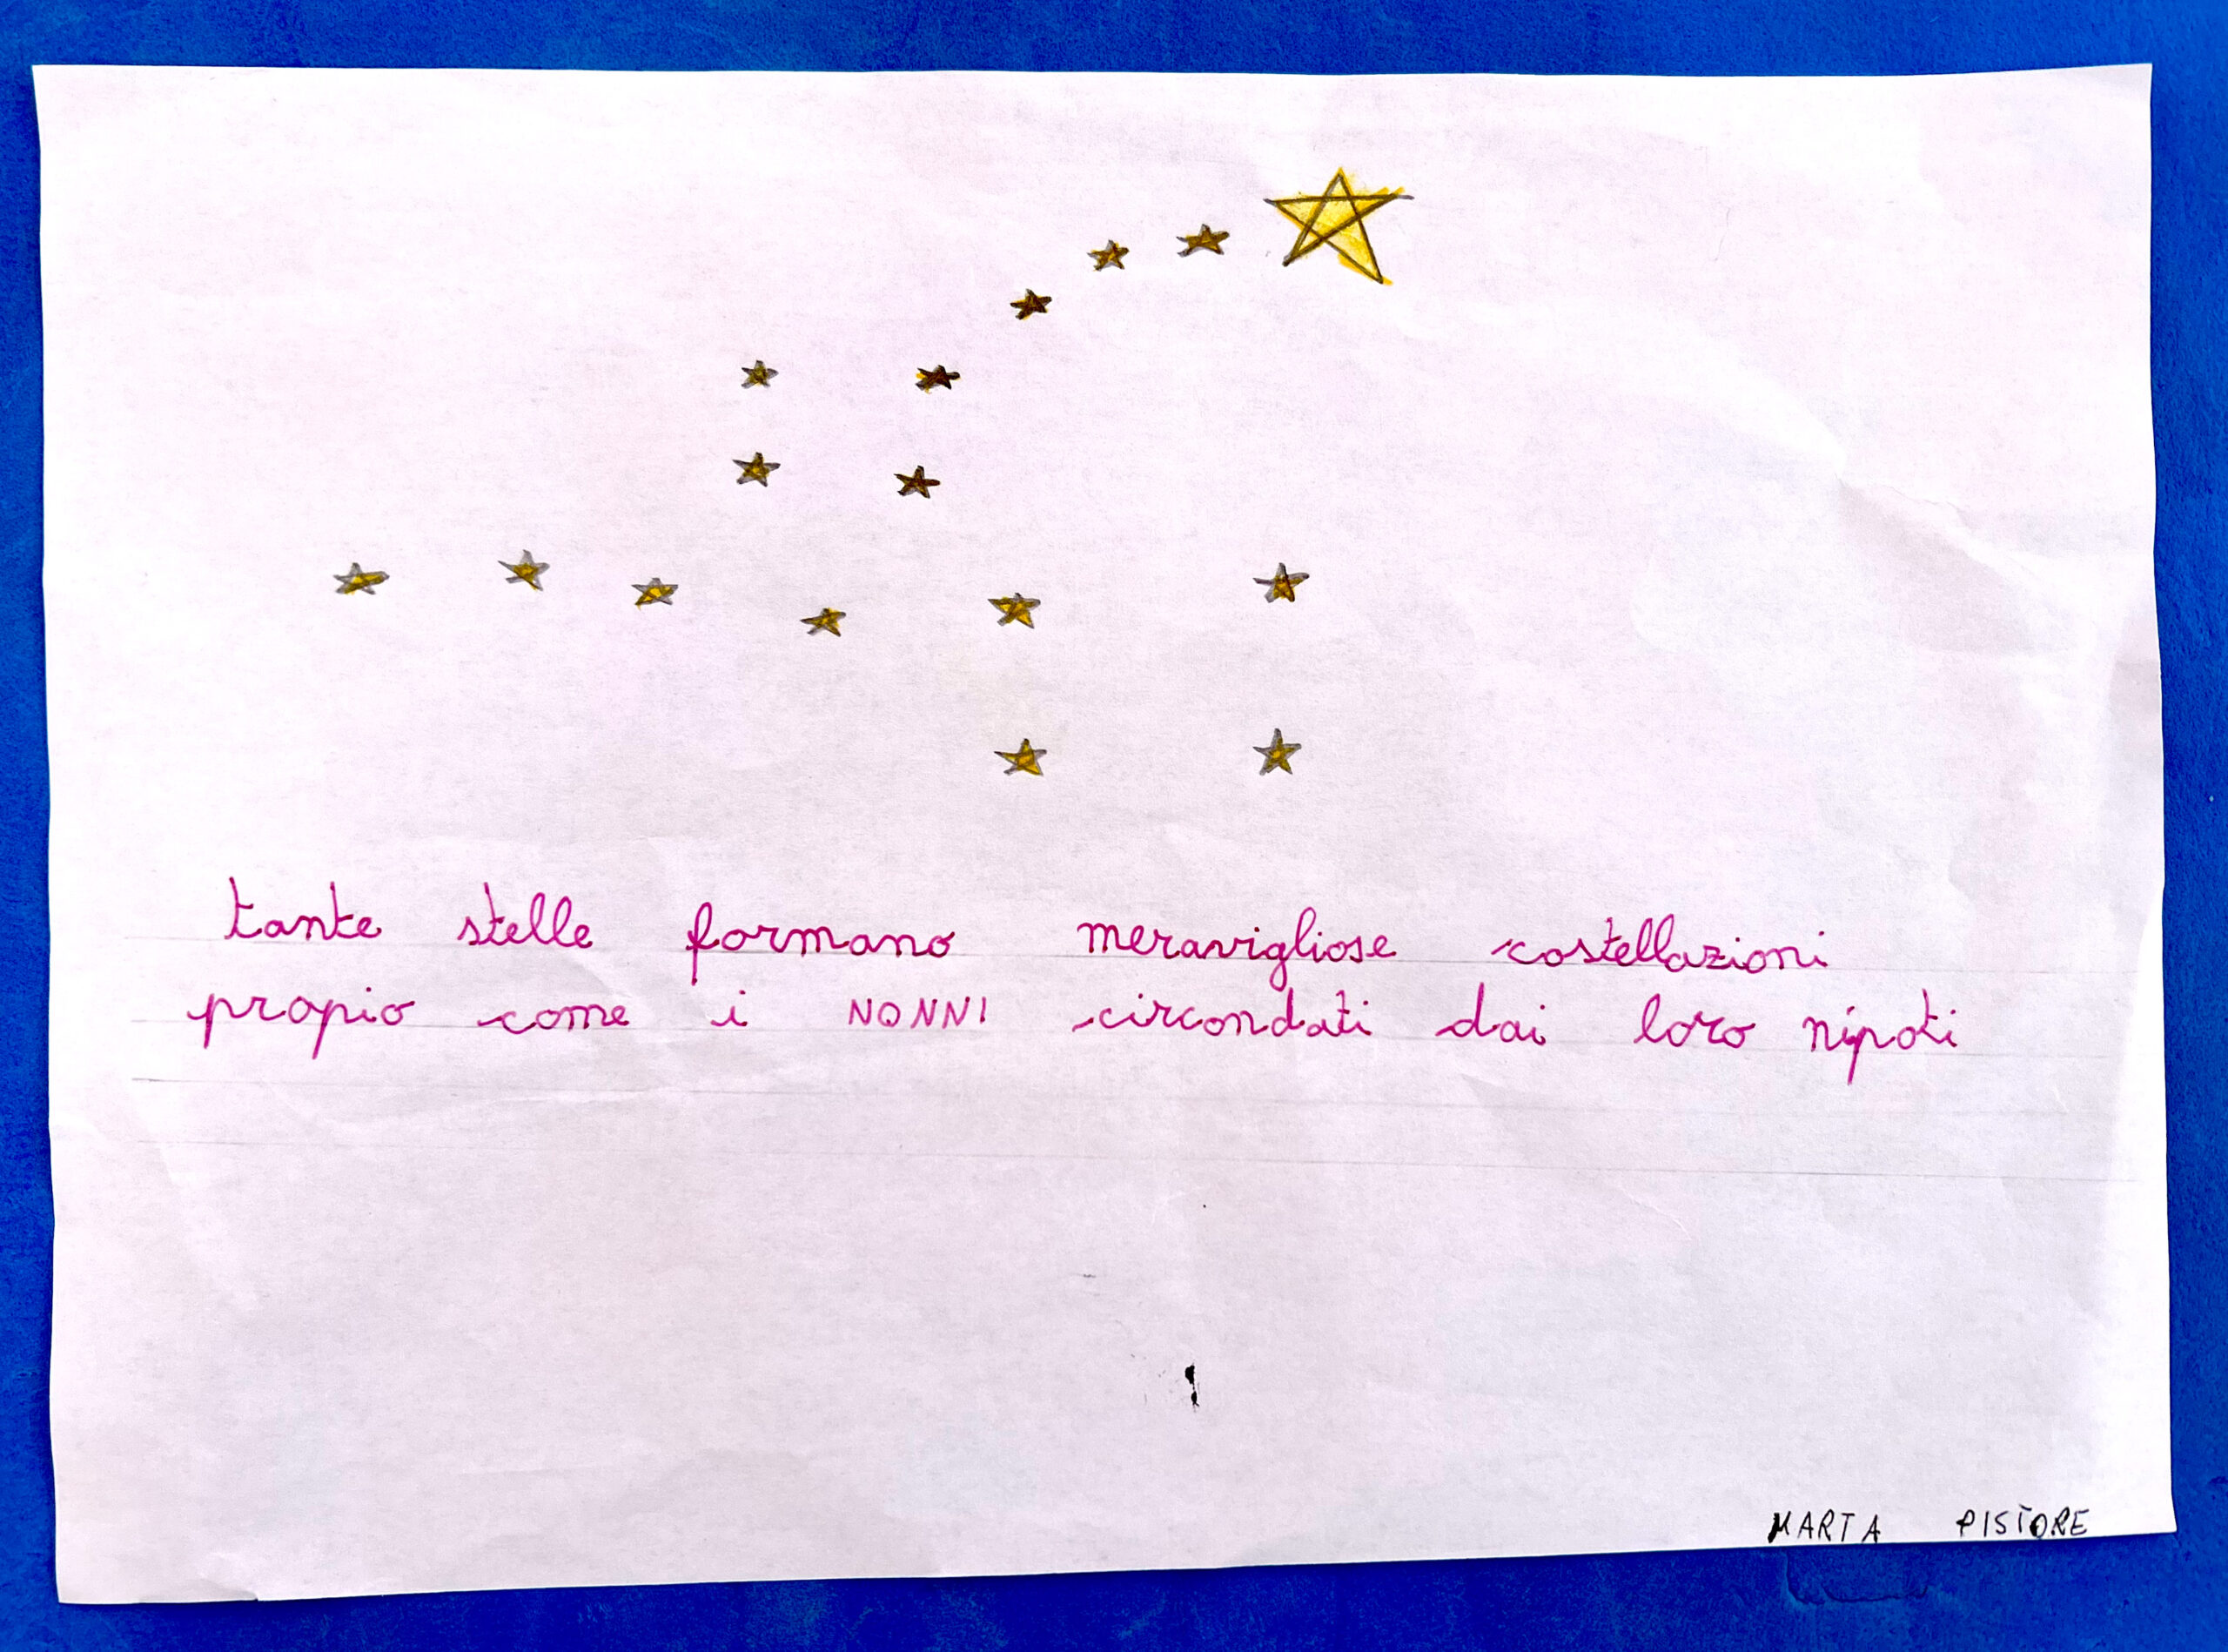 tante stelle formano meravigliose costellazioni
propio come i NONNI circondati dai loro nipoti
MARTA PISTORE